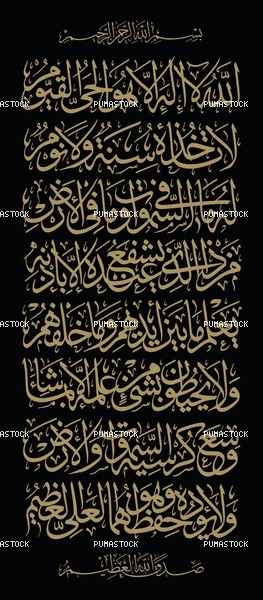 بسم الله الرحمن الرحيم
الله لا إله إلا هو الحي القيوم
لا تأخذه سنة ولا نوم
له ما في السموات وما في الأرض
من ذا الذي يشفع عنده إلا بإذنه
يعلم ما بين أيديهم وما خلفهم
ولا يحيطون بشيء من علمه إلا بما شاء
وسع كرسيه السموات والأرض
ولا يؤده حفظهما وهو العلي العظيم
صدق الله العظيم
PUMASTOCK PUMASTOCK PUMASTOCK
PUMASTOCK PUMASTOCK PUMASTOCK
PUMASTOCK PUMASTOCK PUMASTOCK
PUMASTOCK PUMASTOCK PUMASTOCK
PUMASTOCK PUMASTOCK PUMASTOCK